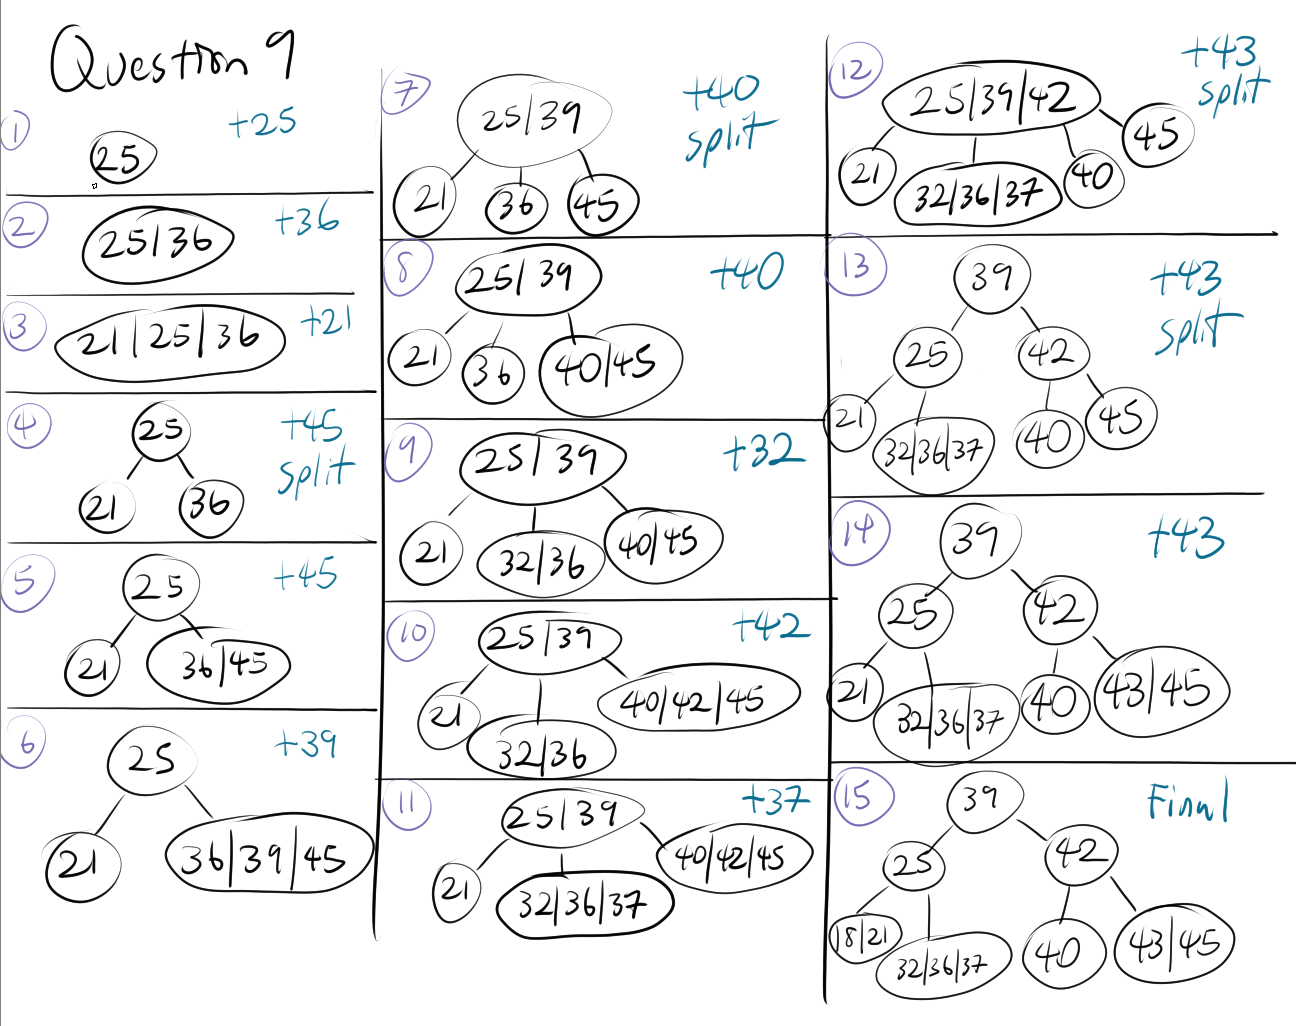 Question 9
1
+25
25
2
+36
25|36
3
+21
21|25|36
4
+45
split
25
21
36
5
+45
25
21
36|45
6
+39
25
21
36|39|45
7
+40
split
25|39
21
36
45
8
+40
25|39
21
36
40|45
9
+32
25|39
21
32|36
40|45
10
+42
25|39
21
32|36
40|42|45
11
+37
25|39
21
32|36|37
40|42|45
12
+43
split
25|39|42
21
32|36|37
40
45
13
+43
split
39
25
42
21
32|36|37
40
45
14
+43
39
25
42
21
32|36|37
40
43|45
15
Final
39
25
42
18|21
32|36|37
40
43|45